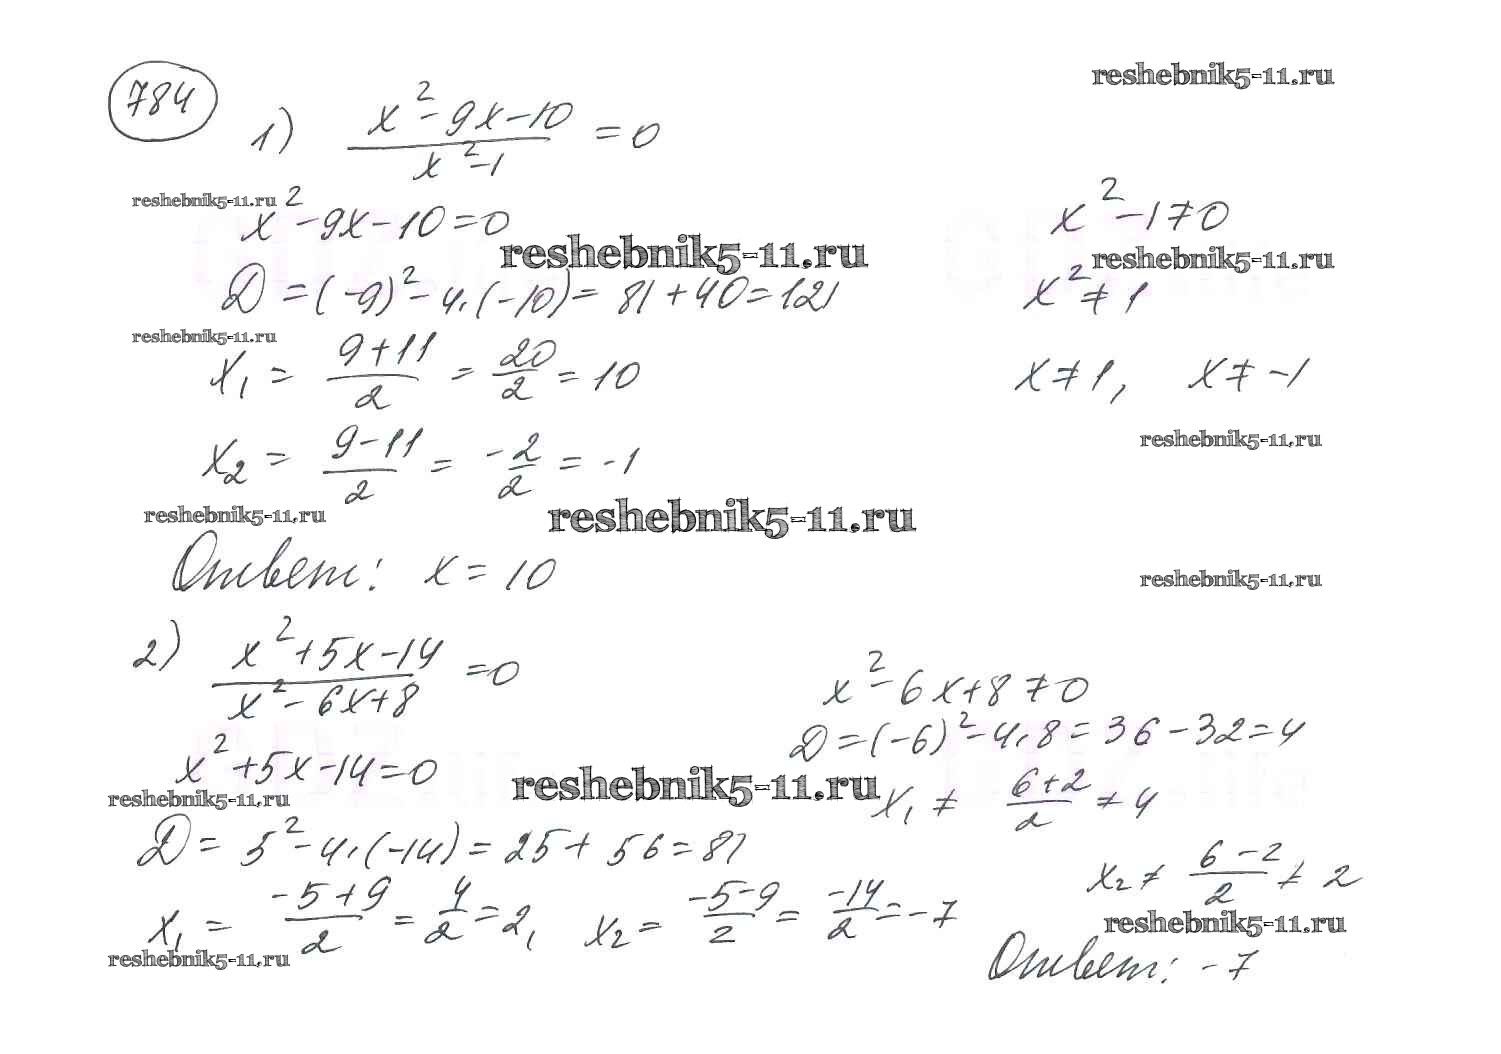 784
reshebnik5-11.ru
1) (x² - 9x - 10)/(x² - 1) = 0
reshebnik5-11.ru
x² - 9x - 10 = 0
x² - 1 ≠ 0
reshebnik5-11.ru
reshebnik5-11.ru
D = (-9)² - 4·(-10) = 81 + 40 = 121
x² ≠ 1
reshebnik5-11.ru
x₁ = (9+11)/2 = 20/2 = 10
x ≠ 1, x ≠ -1
reshebnik5-11.ru
x₂ = (9-11)/2 = -2/2 = -1
reshebnik5-11.ru
reshebnik5-11.ru
Ответ: x = 10
reshebnik5-11.ru
2) (x² + 5x - 14)/(x² - 6x + 8) = 0
x² - 6x + 8 ≠ 0
D = (-6)² - 4·8 = 36 - 32 = 4
x² + 5x - 14 = 0
reshebnik5-11.ru
reshebnik5-11.ru
x₁ ≠ (6+2)/2 ≠ 4
D = 5² - 4·(-14) = 25 + 56 = 81
x₂ ≠ (6-2)/2 ≠ 2
x₁ = (-5+9)/2 = 4/2 = 2, x₂ = (-5-9)/2 = -14/2 = -7
reshebnik5-11.ru
reshebnik5-11.ru
Ответ: -7